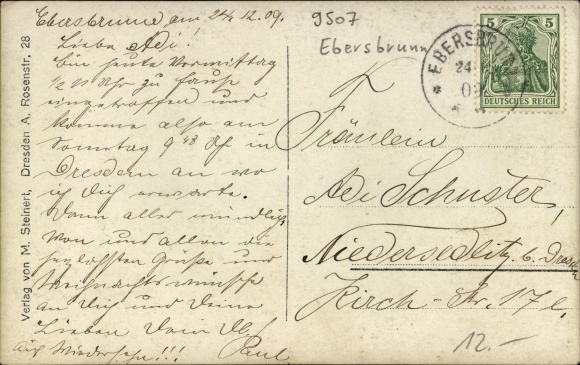 Ebersbrunn, am 24/12.09.
Liebe Adi!
Bin heute Vormittag
1/2 11 Uhr zu Haus
eingetroffen und
komme also am
Sonntag 9 43 Uhr in
Dresden an wo
ich Dich erwarte.
Dann alles mündlich
Von uns allen die
herzlichsten Grüße und
Weihnachtswünsche
an Dich und Deine
Lieben Dein
Auf Wiedersehn!!! Paul
Verlag von M. Steinert, Dresden A. Rosenstr. 28
9507
Ebersbrunn
EBERSBRUNN
24
5 5
DEUTSCHES REICH
Fräulein
Adi Schuster,
Niedersedlitz b. Dresden
Kirch-Str. 17 I.
12.-